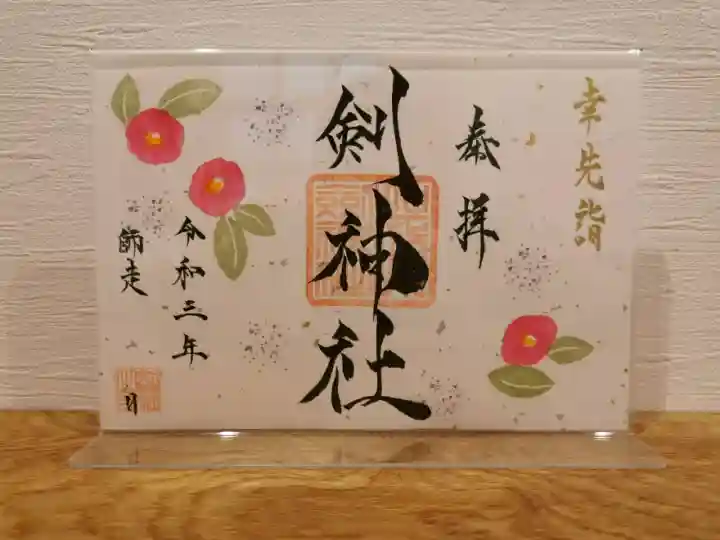 幸先詣
奉拝
剣神社
令和三年
師走